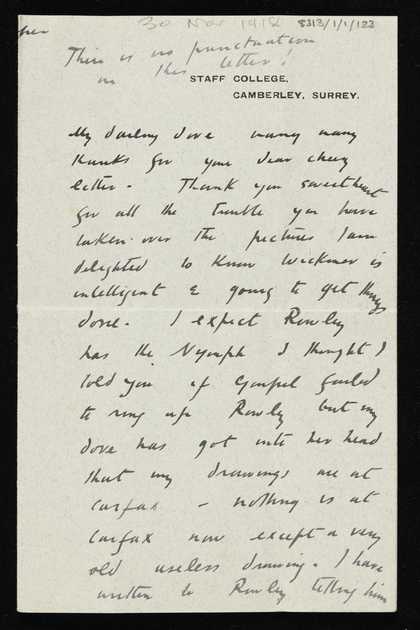 30 Nov 1918
8313/1/1/123
There is no punctuation
in this letter!
STAFF COLLEGE,
CAMBERLEY, SURREY.
My darling dove many many
thanks for your dear cheery
letter. Thank you sweetheart
for all the trouble you have
taken over the pictures I am
delighted to know Wickmer is
intelligent & going to get things
done. I expect Rowley
has the Nymph I thought I
told you if Goupil failed
to ring up Rowley but my
dove has got into her head
that my drawings are at
Carfax - nothing is at
Carfax now except a very
old useless drawing. I have
written to Rowley telling him